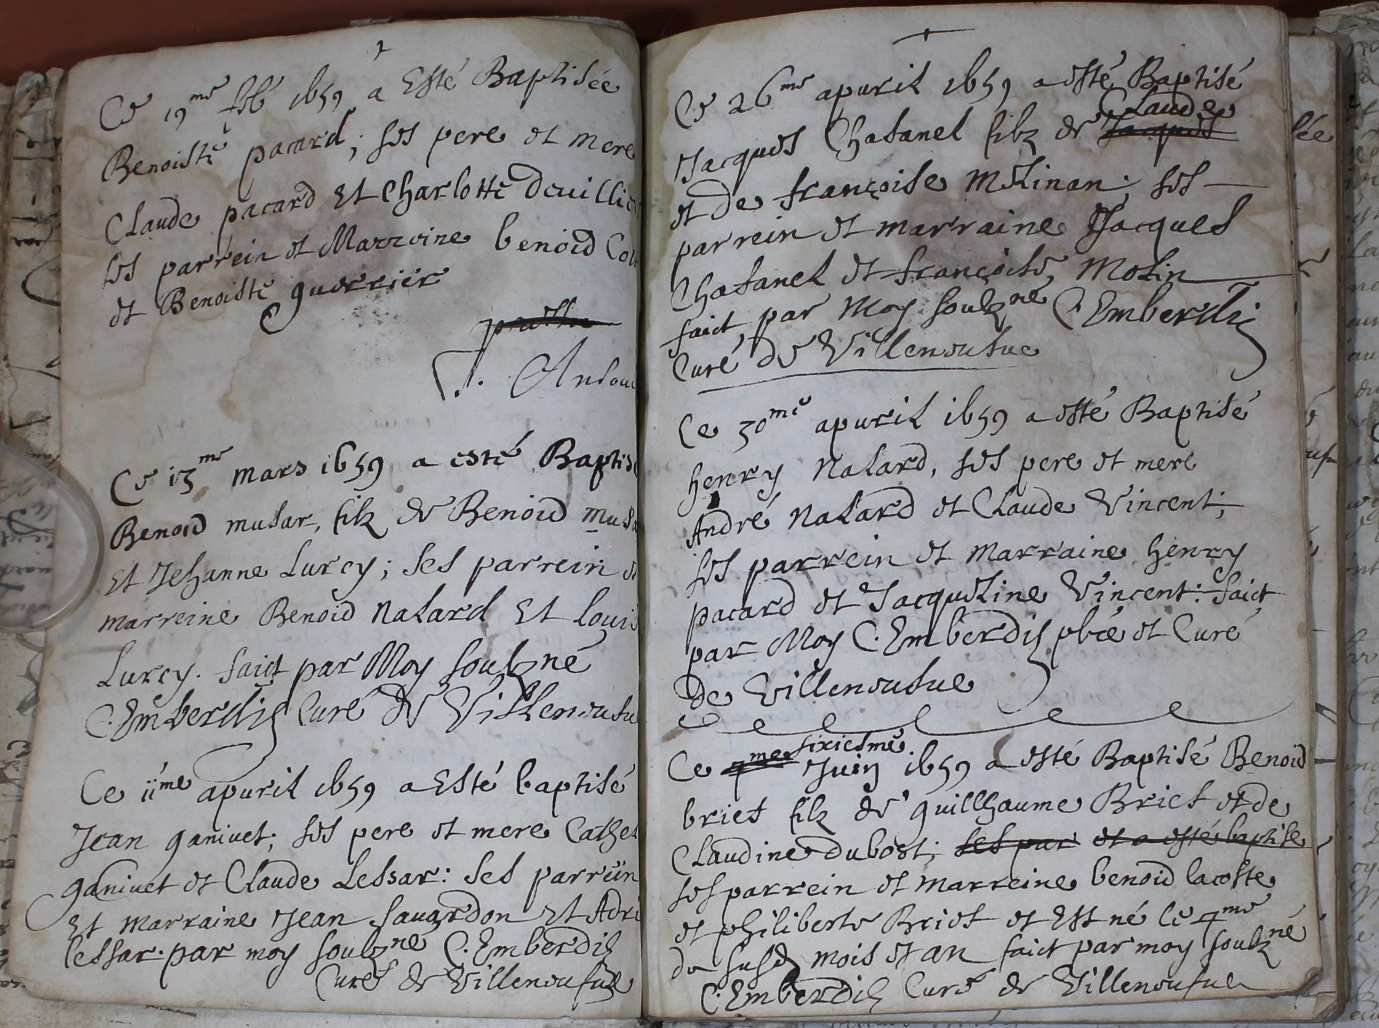 Ce 19me feb 1659 a Esté Baptisée
Benoiste pacard; ses pere et mere
Claude pacard Et Charlotte devillie
ses parrein et Marreine benoid Col
et Benoiste guerrier
Ce 13me mars 1659 a esté Baptisé
Benoid musar, filz de Benoid musa
Et Jehanne Lurcy; ses parrein e
marreine Benoid nalard Et Louis
Lurcy. faict par Moy soubzné
C. Emberdis Curé de Villeneufue
Ce iime apuril 1659 a Esté baptisé
Jean ganivet; ses pere et mere Cather
ganivet et Claude Lessar: ses parrein
Et marraine Jean Sauardon Et Adri
lessar. par moy soubzné C. Emberdis
Curé de Villeneufue
Ce 26me apuril 1659 a esté Baptisé
Claude
Jacques Chasanel filz de Jacques
et de françoise Molinan. ses
parrein et marraine Jacques
Chasanel et françoise Molin
faict par Moy soubzné C. Emberdis
Curé de Villeneufue
Ce 30me apuril 1659 a esté Baptisé
henry nalard, ses pere et mere
André nalard et Claude Vincent;
ses parrein et marraine henry
pacard et Jacqueline Vincent: faict
par Moy C. Emberdis pbre et Curé
de Villeneufue
sixiesme
Ce 4me Juin 1659 a esté Baptisé Benoid
briet filz de guillhaume Briet et de
Claudine dubost; ses par et a esté baptisé
ses parrein et marreine benoid lacoste
et philiberte Briet et Est né le 4me
de susd mois et an faict par moy soubzné
C. Emberdis Curé de Villeneufue